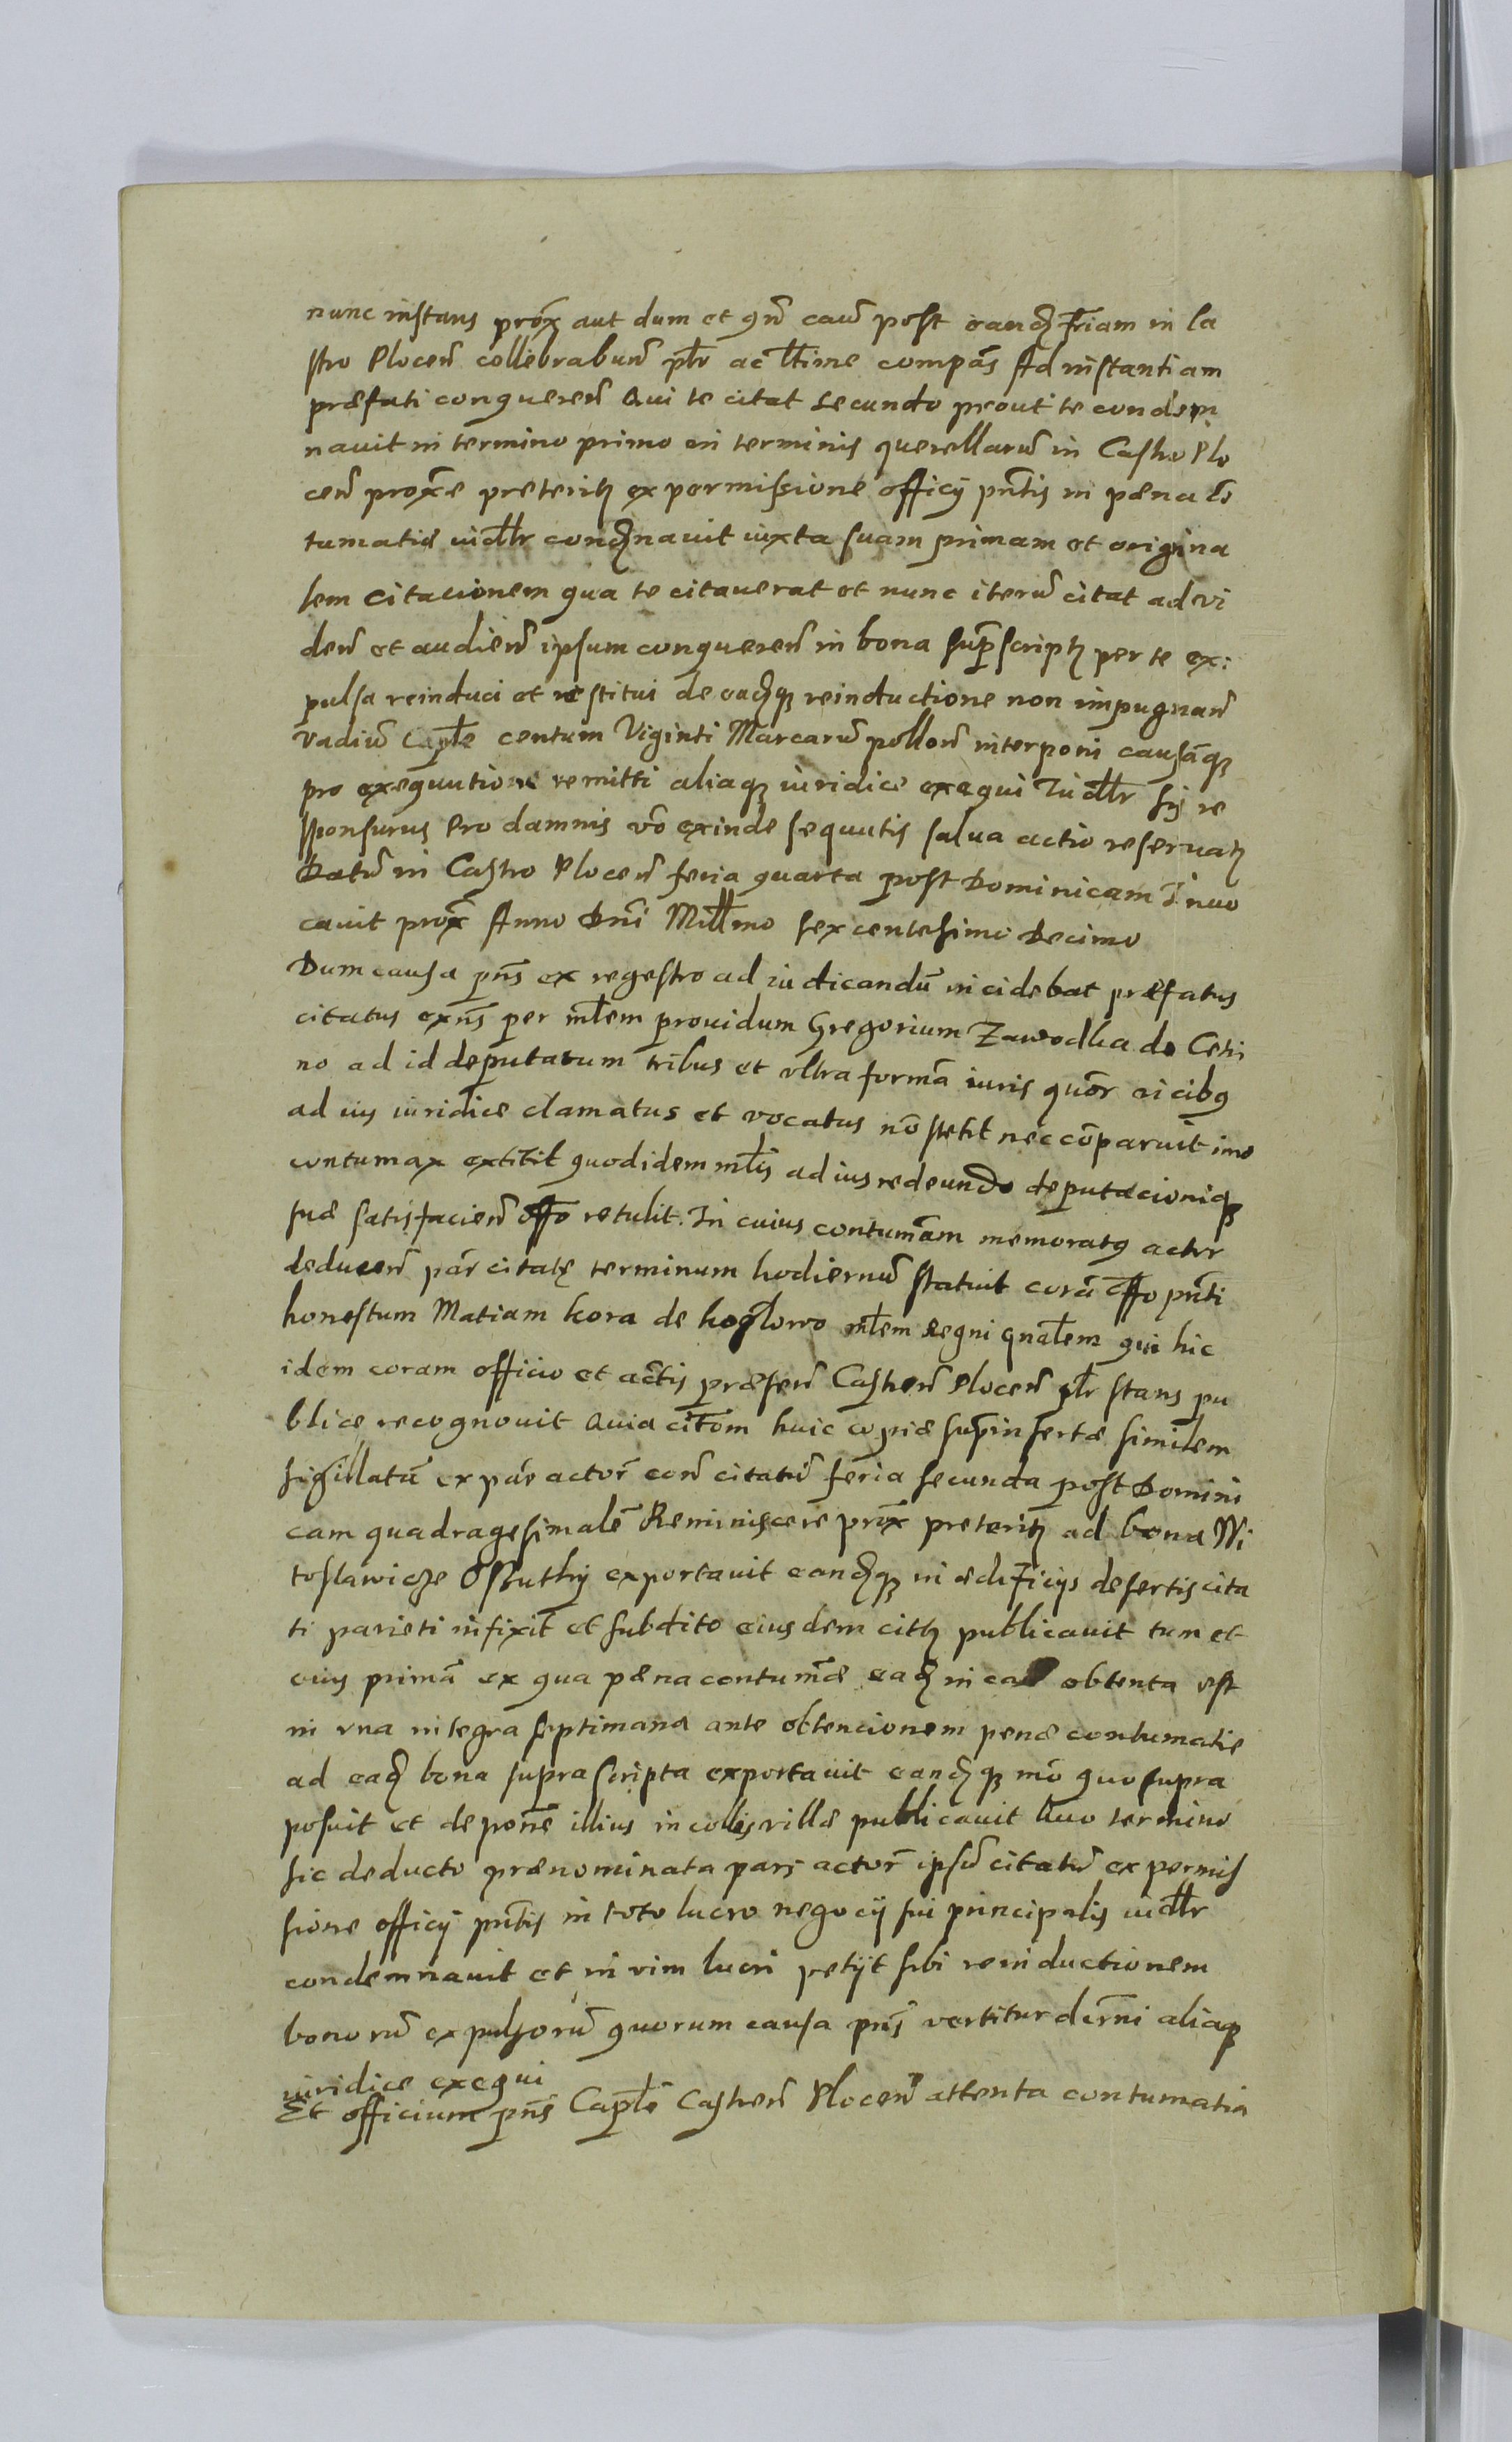 nunc instans prox̃ aut dum et qñ cau͂ post eandẽ feriam in Ca
stro Plocen͂ collebrabun͂ pl̃r ac l̃time compãs Ad instantiam
præfati conqueren͂ Qui te citat secundo prout te condem
nauit in termino primo in terminis querellaru͂ in Castro Plo
cen͂ prox̃e preteritꝫ ex permissione officÿ pñtis in pæna cõ
tumatiæ uidl̃r condẽnauit iuxta suam primam et origina
lem citacionem qua te citauerat et nunc iteru͂ citat ad vi
den͂ et audien͂ ipsum conqueren͂ in bona supr̃scriptꝫ per te ex:
pulsa reinduci et restitui de eadẽqꝫ reinductione non impugnan͂
vadiu͂ Capl̃e centum Viginti Marcaru͂ pollon͂ interponi causãqꝫ
pro exequutione remitti aliaqꝫ iuridice exequi Iudl̃r sis re
sponsurus Pro damnis võ exinde sequutis salua actio reseruatꝫ
Datu͂ in Castro Plocen͂ feria quarta post Dominicam Inuo
cauit prox̃ Anno Dñi Mill̃mo sexcentesimo Decimo
Dum causa pñs ex regestro ad iudicandu͂ incidebat præfatus
citatus exñs per ml̃em prouidum Gregorium Zawodka de Cetli
no ad id deputatum tribus et vltra formã iuris quõr vicibꝰ
ad ius iuridice clamatus et vocatus nõ stetit nec cõparuit imo
contumax extitit quod idem ml̃is ad ius redeundo deputacioniqꝫ
suæ satisfacien͂ off̃o retulit. In cuius contumãm memoratꝰ actor
deducen͂ par̃ citatę terminum hodiernu͂ statuit corã off̃o pñti
honestum Matiam kora de koglowo ml̃em Regni gnal̃em qui hic
idem coram officio et actis præsen͂ Castren͂ Plocen͂ pl̃r stans pu
blice recognouit Quia citõm huic copiæ supr̃insertæ similem
sigillatã ex par̃ actor̃ con͂ citatu͂ feria secunda post Domini
cam quadragesimalẽ Reminiscere prox̃ preteritꝫ ad bona Wi
toslawicze Ossuthÿ exportauit eandẽqꝫ in ædificÿs desertis cita
ti parieti infixit et subdito eiusdem citꝫ publicauit tum et
eius primã ex qua pæna contumãæ eadẽ in cau͂ obtenta est
in vna integra septimana ante obtencionem penæ contumatie
ad eadẽ bona suprascripta exportauit eandẽqꝫ mõ quo supra
posuit et de pońe illius incollis villæ publicauit Quo termino
sic deducto prænominata pars actor̃ ipsu͂ citatu͂ ex permis
sione officÿ pñtis in toto lucro negocÿ sui principalis uidl̃r
condemnauit et in vim lucri petÿt sibi reinductionem
bonoru͂ expulsoru͂ quorum causa pñs vertitur decrñi aliaqꝫ
iuridice exequi
Et officium pñs Capl̃e Castren͂ Plocen͂ attenta contumatia